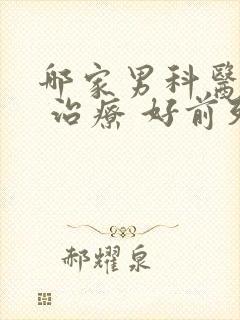 郍家男科醫
治療 好前列
郝耀泉